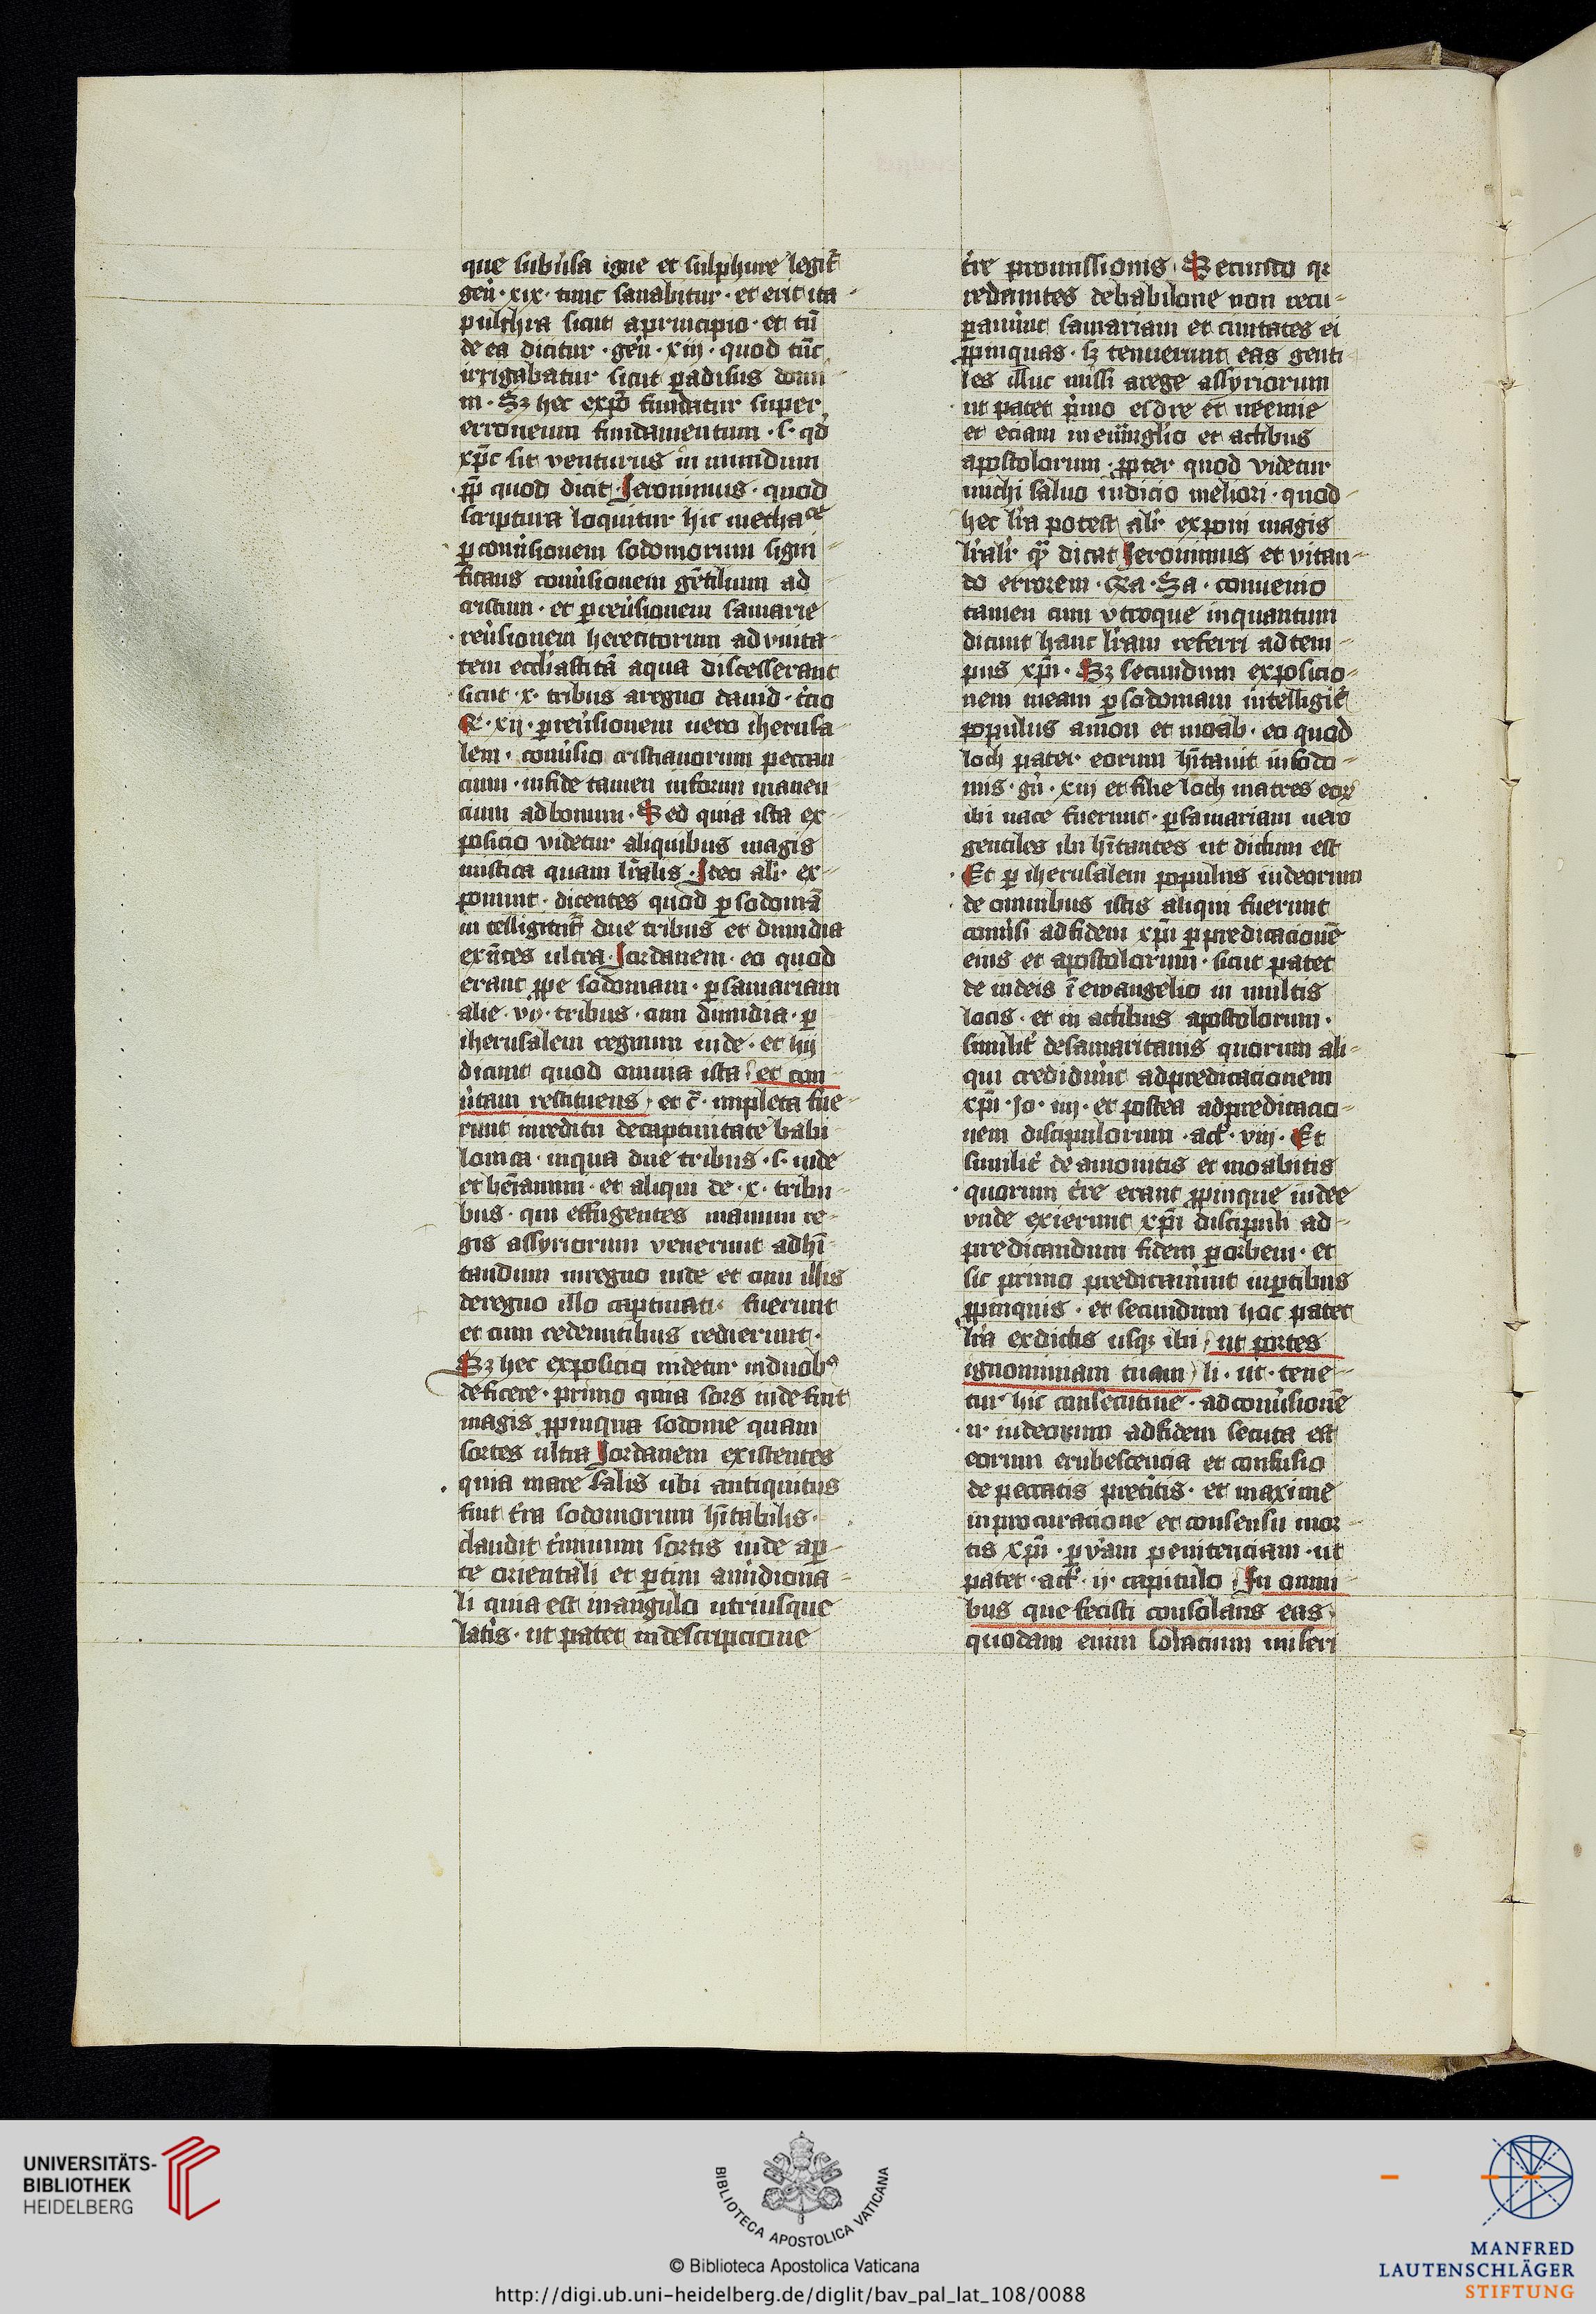 que subũsa igne et sulphure legit᷑
geñ · xix · tunc sanabitur · et erit ita
pulchra sicut aprincipio · et tũ
de ea dicitur · geñ · xiij · quod tũc
irrigabatur sicut padisus domi
ni · Sꝫ hec expõ fundatur super
erroneum fundamentum · s · qđ
xp̃c sit venturus in mundum
ꝓp̃ quod dicit Jeronimus · quod
scriptura loquitur hic metha
ꝑ conũsionem sodomorum signi
ficans conũsionem gẽtilium ad
cristum · et ꝑ reũsionem samarie
reũsionem hereticorum ad vnita
tem eccl̃iasticã aqua discesserant
sicut · x · tribus aregno dauid · t̃cio
R̃ · xij · ꝑ reũsionem uero iherusa
lem · conũsio cristianorum peccan
cium · infide tamen insorum manen
cium ad bonum · Sed quia ista ex
posicio videtur aliquibus magis
mistica quam l̃ralis · Ideo alĩ · ex
ponunt · dicentes quod ꝑ sodomã
in telligitur due tribus et dimidia
exñtes ultra · Jordanem · eo quod
erant ꝓpe sodomam · ꝑ samariam
alie · vij · tribus · cum dimidia · ꝑ
iherusalem regnum iude · et hij
dicunt quod omnia ista et con
ũtam restituens · et c̃ · impleta fue
runt inreditu decaptiuitate babi
lonica · inqua due tribus · s · iude
et beĩamin · et aliqui de · x · tribu
bus · qui effugentes manum re
gis assyriorum venerunt ad hĩ
tandum inregno iude et cum illis
deregno illo captiuati · fuerunt
et cum redeuntibus redierunt ·
Sꝫ hec exposicio uidetur induobꝫ
deficere · primo quia sors iude fuit
magis ꝓpinqua sodome quam
sortes ultra Jordanem existentes
quia mare salis ubi antiquitus
fuit t̃ra sodomorum hĩtabilis ·
claudit t̃minum sortis iude a p
te orientali et ꝑtim a meridiona
li quia est inangulo utriusque
lat̃is · ut patet indescripcione
t̃re promissionis · Secundo qꝛ
redeuntes debabilone non recu
ꝑauerũt samariam et ciuitates ei
ꝓpinquas · sꝫ tenuerunt eas genti
les illuc missi arege assyriorum
ut patet p̃mo esdre et neemie
et eciam in ewãglio et actibus
apostolorum · ꝓpter quod videtur
michi saluo iudicio meliori · quod
hec l̃ra potest alĩ exponi magis
l̃ralĩ qᷓ dicat Jeronimus et vitan
do errorem · Ra · Sa · conuenio
tamen cum vtroque inquantum
dicunt hanc l̃ram referri ad tem
pus xp̃i · Sꝫ secundum exposicio
nem meam ꝑ sodomam intelligit᷑
populus amon et moab · eo quod
loth pater eorum hĩtauit insodo
mis · gñ · xiij et filie loth matres eoꝝ
ibi nate fuerunt · ꝑ samariam uero
gentiles ibi hĩtantes ut dictum est
Et ꝑ iherusalem populus iudeorum
de omnibus istis aliqui fuerunt
conũsi ad fidem xp̃i ꝑ predicacionẽ
eius et apostolorum · sicut patet
de iudeis ĩ ewangelio in multis
locis · et in actibus apostolorum ·
similit̃ desamaritanis quorum ali
qui crediderũt adpredicacionem
xp̃i · Jo · iiij · et postea adpredicacio
nem discipulorum · act᷑ · viij · Et
similit̃ de amonitis et moabitis
quorum t̃re erant ꝓpinque iudee
vnde exierunt xp̃i discipuli ad
predicandum fidem ꝑ orbem · et
sic primo predicauerũt inꝑtibus
ꝓpinquis · et secundum hoc patet
l̃ra exdictis usqꝫ ibi ut portes
ignominiam tuam li · ut · tene
tur hic consecutiue · ad conũsionẽ
ñ iudeorum ad fidem secuta est
eorum erubescencia et confusio
de peccatis pret̃itis · et maxime
inprocuracione et consensu mor
tis xp̃i · ꝑ ṽam penitenciam · ut
patet · act᷑ · ij · capitulo In omni
bus que fecisti consolans eas
quodam enim solacium miseri
UNIVERSITÄTS-
BIBLIOTHEK
HEIDELBERG
BIBLIOTECA APOSTOLICA VATICANA
© Biblioteca Apostolica Vaticana
http://digi.ub.uni-heidelberg.de/diglit/bav_pal_lat_108/0088
MANFRED
LAUTENSCHLÄGER
STIFTUNG